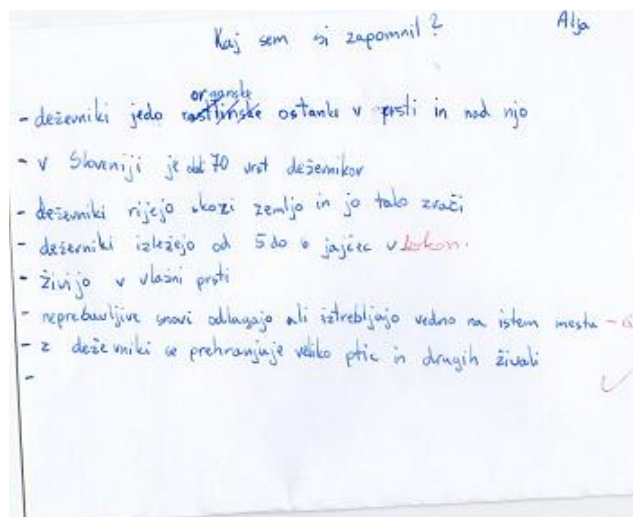 Kaj sem si zapomnil? Alja
organske
- deževniki jedo rastlinske ostanke v prsti in nad njo
- v Sloveniji je 70 vrst deževnikov
- deževniki rijejo skozi zemljo in jo tako zrači
- deževniki izležejo od 5 do 6 jajčec v kokon.
- živijo v vlažni prsti
- neprebavljive snovi odlagajo ali iztrebljajo vedno na istem mestu -
- z deževniki se prehranjuje veliko ptic in drugih živali
-